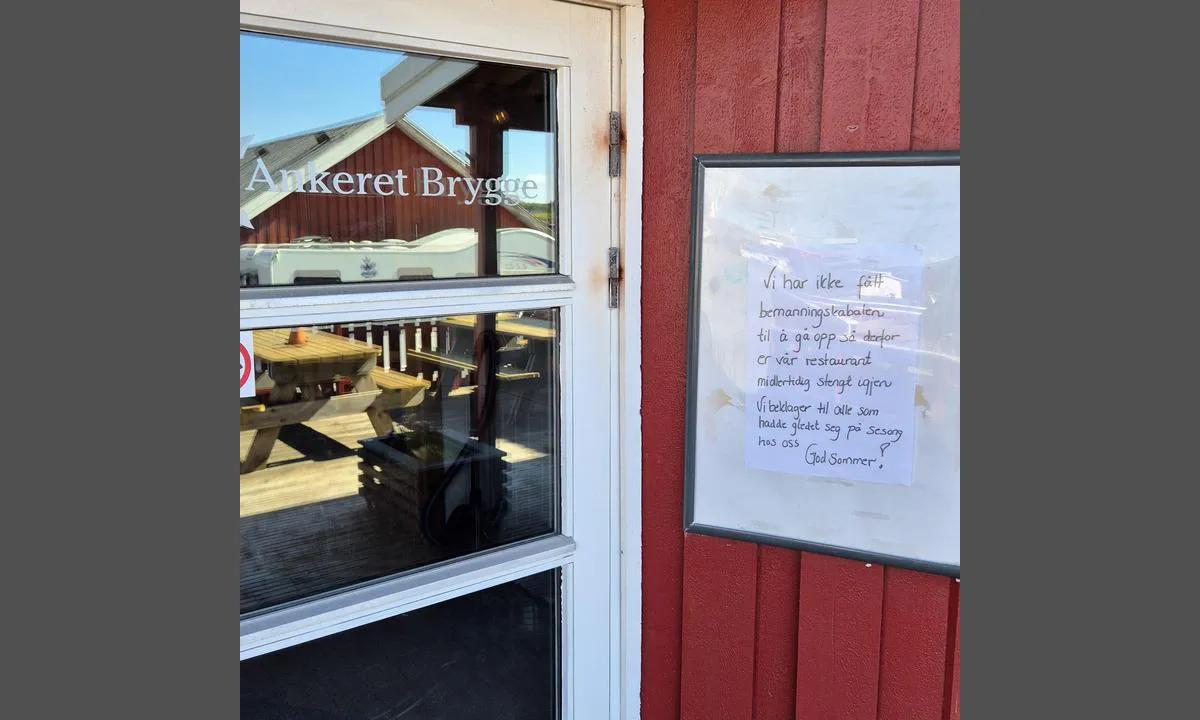 Ankeret Brygge
Vi har ikke fått
bemanningskabalen
til å gå opp så derfor
er vår restaurant
midlertidig stengt igjen
Vi beklager til alle som
hadde gledet seg på sesong
hos oss
God Sommer!